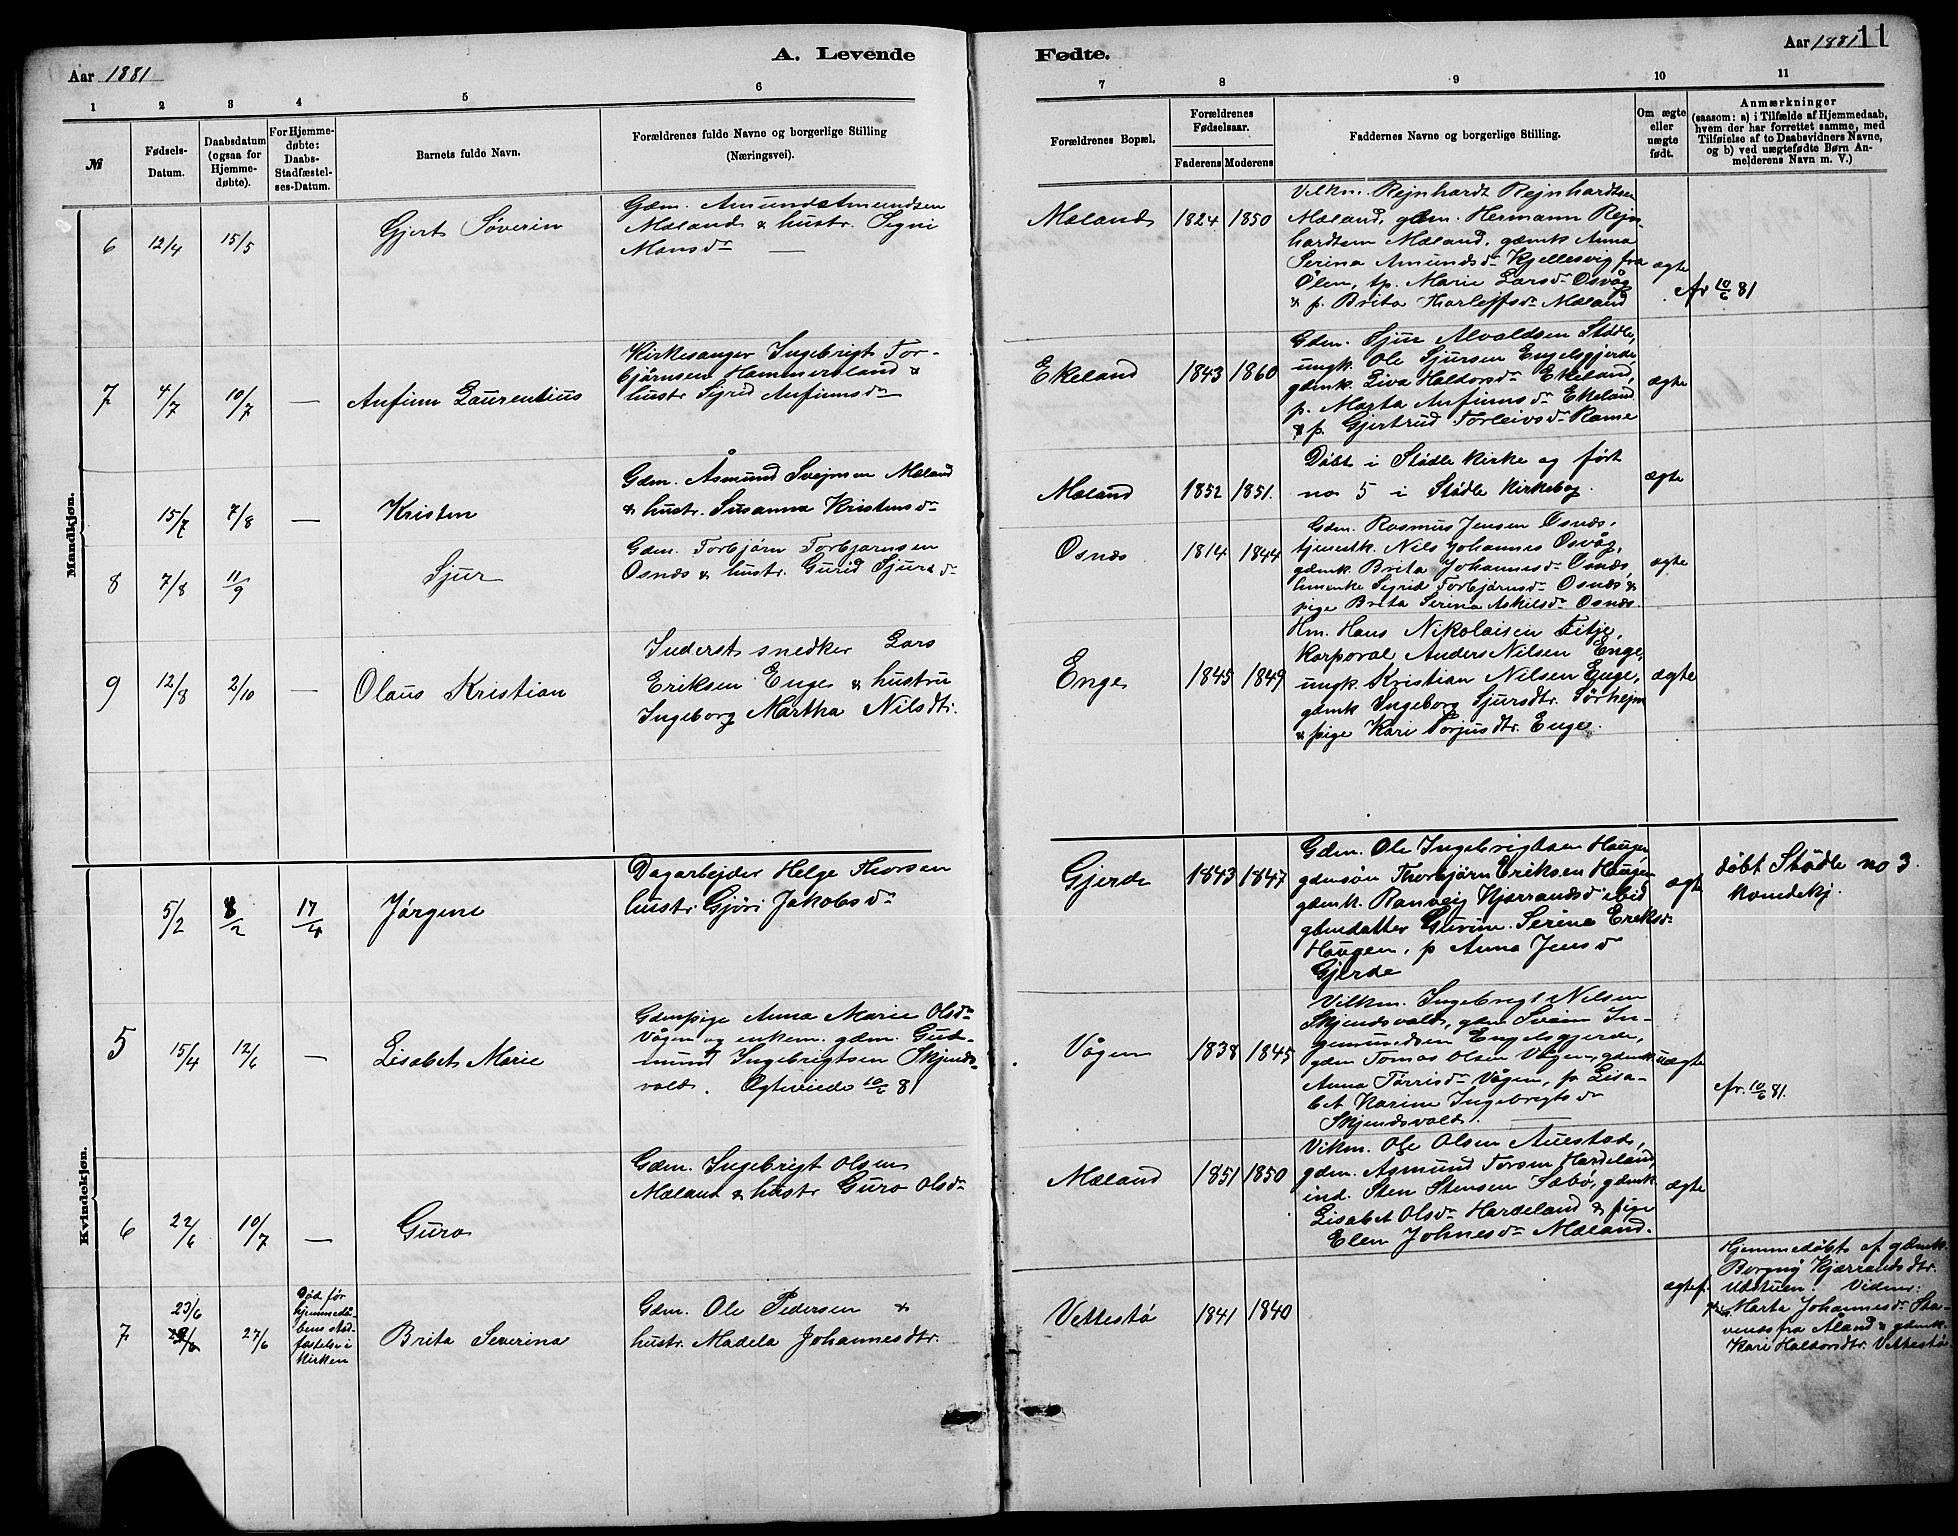 Aar 1881
A. Levende
Fødte.
Aar 1881
11
1 2 3 4 5 6 7 8 9 10 11
№
Fødsels-
Datum.
Daabsdatum
(ogsaa for
Hjemme-
døbte).
For Hjemme-
døbte:
Daabs-
Stadfæstel-
ses-Datum.
Barnets fulde Navn.
Forældrenes fulde Navne og borgerlige Stilling
(Næringsvei).
Forældrenes Bopæl.
Forældrenes
Fødselsaar.
Faderens Moderens
Faddernes Navne og borgerlige Stilling.
Om ægte
eller
uægte
født.
Anmærkninger
(saasom: a) i Tilfælde af Hjemmedaab,
hvem der har forrettet samme, med
Tilføielse af to Daabsvidners Navne,
og b) ved uægtefødte Børn An-
melderens Navn m. V.)
Mandkjøn.
6
12/4
15/5
Gjert Søverin
Gdm. Amund Amundsen
Mæland & hustr. Signi
Monsdr
Mæland
1824
1850
Vilkm. Rejnhardt Rejnhardtsen
Mæland, gdm. Hermann Rejn-
hardtsen Mæland, gdmk Anna
Serina Amundsdr Kjellesvig fra
Ølen, tp. Marie Larsdr Osvåg
& p. Brita Thorleifsdr Mæland
ægte
fr 10/6 81
7
4/7
10/7
—
Anfinn Laurentius
Kirkesanger Ingebrigt Tor-
bjørnsen Hammersland &
hustr Sigrid Anfinnsdr
Ekeland
1843
1860
Gdm. Sjur Alvaldsen Stødle,
ungk. Ole Sjursen Engelsgjerde
gdmk. Liva Haldorsdr Ekeland,
p. Marta Anfinnsdr Ekeland
& p. Gjertrud Torleivsdr Rame
ægte
15/7
7/8
—
Kristen
Gdm. Åsmund Svejnsen Mæland
& hustr. Susanna Kristensdr
Mæland
1852
1851.
Døbt i Stødle kirke og ført
no 5 i Stødle Kirkebog.
ægte
8
7/8
11/9
Sjur
Gdm. Torbjørn Torbjørnsen
Osnæs & hustr. Gurid Sjursdr
Osnæs
1814
1844
Gdm. Rasmus Jensen Osnæs,
tjenestk. Nils Johannes Osvåg,
gdmk. Brita Johannesdr Osnæs,
hmenke Sigrid Torbjørnsdr Osnæs &
pige Brita Serina Askilsdr Osnæs.
ægte
9
12/8
2/10
—
Olaus Kristian
Inderst snedker Lars
Eriksen Enge & hustru
Ingeborg Martha Nilsdtr.
Enge
1845
1849
Hm. Hans Nikolaisen Fitje,
Korporal Anders Nilsen Enge,
ungk. Kristian Nilsen Enge,
gdmk Ingeborg Sjursdtr. Sørhejm
& pige Kari Torjusdtr. Enge.
ægte
Kvindekjøn.
5/2
8/2
17/4
Jørgine
Dagarbejder Helge Thorsen
hustr Gjøri Jakobsdr
Gjerde
1843
1847
Gdm. Ole Ingebrigtsen Haugen
gdmsøn Thorbjørn Eriksen Haugen
gdmk. Ranveig Kjærrandsdr ibid
gbmdatter Gurine Serine Eriksdr
Haugen, p Anna Jensdr
Gjerde
ægte
døbt Stødle no 3.
kvindekj.
5
15/4
12/6
—
Lisabet Marie
Gdmpige Anna Marie Olsdr
Vågen og enkem. gdm. Gud-
mund Ingebrigtsen Skjends-
vold. Ogteviede 10/6 81
Vågen
1838
1845
Vilkm. Ingebrigt Nilsen
Skjendsvold, gdm Svein In-
gemundsen Engelsgjerde,
gdm Tomas Olsen Vågen, gdmk
Anna Tørrisdr Vågen, p. Lisa-
bet Karine Ingebrigtsdr
Skjendsvold.
uægte
fr. 10/6 81.
6
22/6
10/7
—
Guro
Gdm. Ingebrigt Olsen
Mæland & hustr Guro Olsdr
Mæland
1851
1850
Vikm. Ole Olsen Auestad,
gdm. Asmund Torsen Hardeland,
ind. Sten Stensen Sæbø, gdmk
Lisabet Olsdr Hardeland & pige
Elen Johnesdr Mæland.
ægte
7
23/6
27/6
Død før
hjemmedå-
bens stad-
fæstelse i
kirken
Brita Severina
Gdm. Ole Pedersen &
hustr. Madela Johannesdtr.
Vettestø
1841
1840
ægtef.
Hjemmedøbt af gdmk.
Borgny Kjærrandsdtr.
Udstuen. Vidner:
Marta Johannesdr Sta-
venæs fra Åland & gdmk.
Kari Haldorsdtr. Vettestø.